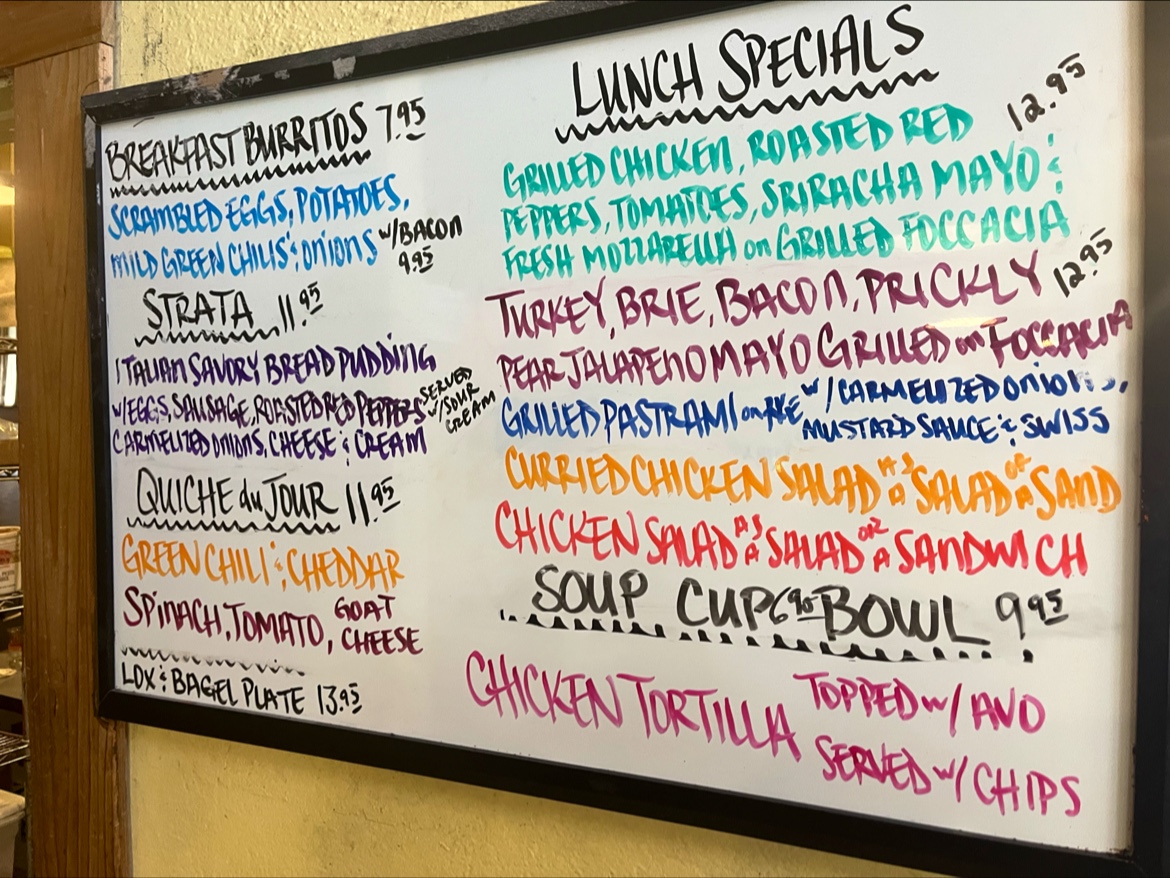 BREAKFAST BURRITOS 7.95
SCRAMBLED EGGS, POTATOES,
MILD GREEN CHILIS & ONIONS w/BACON 9.95
STRATA 11.95
ITALIAN SAVORY BREAD PUDDING
w/EGGS, SAUSAGE, ROASTED RED PEPPERS
CARMELIZED ONIONS, CHEESE & CREAM
SERVED
w/SOUR
CREAM
QUICHE du JOUR 11.95
GREEN CHILI & CHEDDAR
SPINACH, TOMATO, GOAT CHEESE
LOX & BAGEL PLATE 13.95
LUNCH SPECIALS
12.95
GRILLED CHICKEN, ROASTED RED
PEPPERS, TOMATOES, SRIRACHA MAYO &
FRESH MOZZARELLA on GRILLED FOCCACIA
TURKEY, BRIE, BACON, PRICKLY 12.95
PEAR JALAPENO MAYO GRILLED on FOCCACIA
GRILLED PASTRAMI on RYE w/CARMELIZED ONIONS,
MUSTARD SAUCE & SWISS
CURRIED CHICKEN SALAD AS a SALAD OR a SAND
CHICKEN SALAD AS a SALAD OR a SANDWICH
SOUP CUP 6.95 BOWL 9.95
CHICKEN TORTILLA TOPPED w/AVO
SERVED w/CHIPS